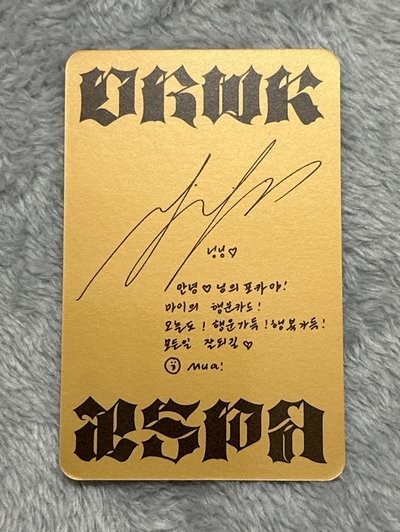 DRWK
닝닝♡
안녕♡닝의 포카야!
마이의 행운카드!
오늘도! 행운가득!행복가득!
모든일 잘되길♡
mua!
æSPA